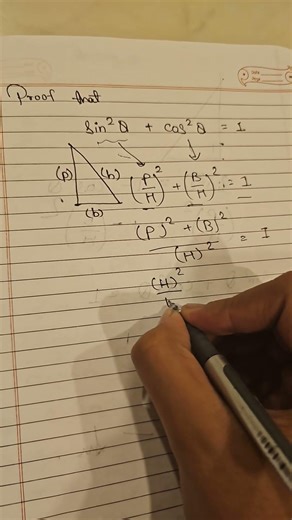 Proof that
sin²θ + cos²θ = 1
(P) (h) (P/H)² + (B/H)² = 1
(b)
(P)² + (B)² / (H)² = 1
(H)²